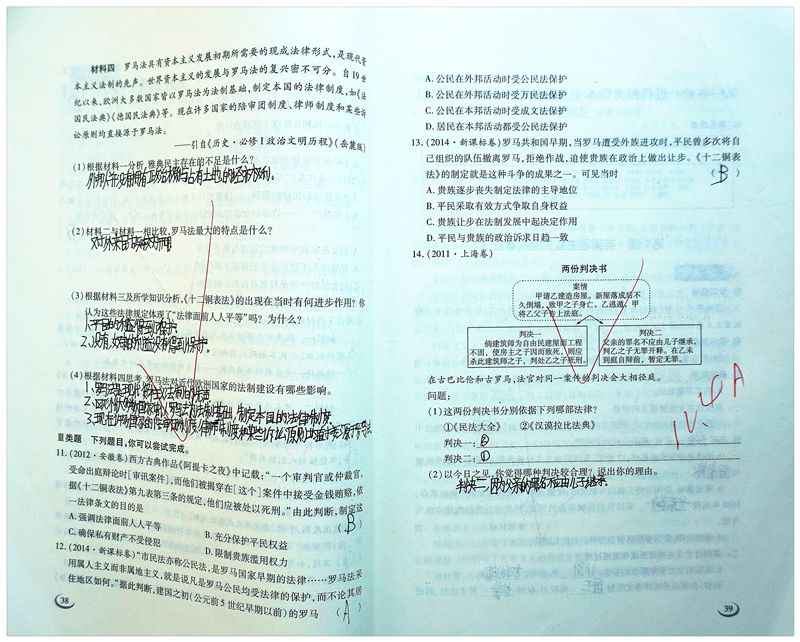 材料四 罗马法具有资本主义发展初期所需要的现成法律形式,是现代资
本主义法制的先声。世界资本主义的发展与罗马法的复兴密不可分。自19世
纪以来,欧洲大多数国家皆以罗马法为法制基础,制定本国的法律制度,如《法
国民法典》《德国民法典》等。现在许多国家的陪审团制度、律师制度和某些诉
讼原则均直接源于罗马法。
——引自《历史·必修Ⅰ政治文明历程》(岳麓版)
(1)根据材料一分析,雅典民主存在的不足是什么?
(2)材料二与材料一相比较,罗马法最大的特点是什么?
(3)根据材料三及所学知识分析,《十二铜表法》的出现在当时有何进步作用?你
认为这些法律规定体现了“法律面前人人平等”吗?为什么?
1.平民的利益得到保护
2.没有,奴隶的利益没有得到保护。
(4)根据材料四思考,罗马法对近代欧洲国家的法制建设有哪些影响。
Ⅲ类题 下列题目,你可以尝试完成。
11.(2012·安徽卷)西方古典作品《阿提卡之夜》中记载:“一个审判官或仲裁官,
受命出庭辩论时[审讯案件],而他们被揭穿在[这个]案件中接受金钱贿赂,依
据《十二铜表法》第九表第三条的规定,他们应被处以死刑。”由此判断,制定这
一法律条文的目的是 (B)
A.强调法律面前人人平等 B.充分保护平民权益
C.确保私有财产不受侵犯 D.限制贵族滥用权力
12.(2014·新课标卷)“市民法亦称公民法,是罗马国家早期的法律……罗马法采
用属人主义而非属地主义,就是说凡是罗马公民均受法律的保护,而不论其居
住地区如何。”据此判断,建国之初(公元前5世纪早期以前)的罗马 (A)
38
A.公民在外邦活动时受公民法保护
B.公民在外邦活动时受万民法保护
C.公民在本邦活动时受成文法保护
D.居民在本邦活动都受公民法保护
13.(2014·新课标卷)罗马共和国早期,当罗马遭受外族进攻时,平民曾多次将自
己组织的队伍撤离罗马,拒绝作战,迫使贵族在政治上做出让步。《十二铜表
法》的制定就是这种斗争的成果之一。可见当时 (B)
A.贵族逐步丧失制定法律的主导地位
B.平民采取有效方式争取自身权益
C.贵族让步在法制发展中起决定作用
D.平民与贵族的政治诉求日趋一致
14.(2011·上海卷)
两份判决书
案情
甲请乙建造房屋。新屋落成后不
久倒塌,致甲之子身亡。乙逃遁。甲
将乙父子告上法庭。
判决一
倘建筑师为自由民建屋而工程
不固,使房主之子因而致死,则应
杀此建筑师之子,判处乙之子死刑。
判决二
父亲的罪名不应由儿子继承,
判乙之子无罪开释。在乙未
到庭自辩前,暂定无罪。
在古巴比伦和古罗马,法官对同一案件的判决会大相径庭。
问题:
(1)这两份判决书分别依据下列哪部法律?
①《民法大全》 ②《汉谟拉比法典》
判决一:②
判决二:①
(2)以今日之见,你觉得哪种判决较合理?说出你的理由。
判决二,因为父亲的罪名不应由儿子继承。
A
39